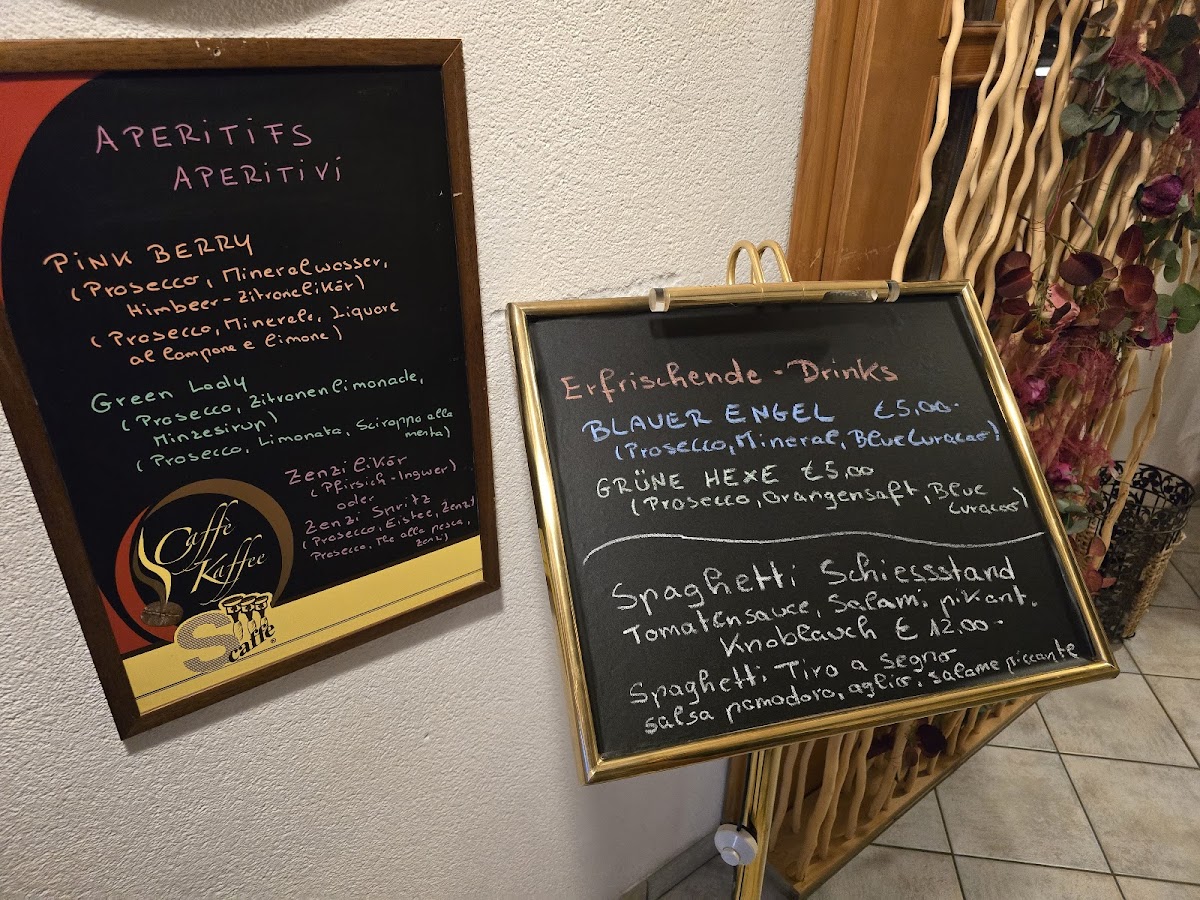 APERiTiFS
APERiTiVi
PiNK BERRY
(Prosecco, Mineralwasser,
Himbeer-Zitronelikör)
(Prosecco, Minerale, Liquore
al lampone e limone)
Green Lady
(Prosecco, Zitronenlimonade,
Minzesirup)
(Prosecco, Limonata, Sciroppo alla
menta)
Zenzilikör
(Pfirsich-Ingwer)
oder
Zenzi Spritz
(Prosecco, Eistee, Zenzi
Prosecco, The alla pesca,
Zenzi)
Caffè
Kaffee
S caffè®
Erfrischende-Drinks
BLAUER ENGEL €5,00-
(Prosecco, Mineral, Blue Curacao)
GRÜNE HEXE €5,00
(Prosecco, Orangensaft, Blue
Curacao)
Spaghetti Schiessstand
Tomatensauce, Salami, pikant.
Knoblauch € 12,00-
Spaghetti Tiro a segno
salsa pomodoro, aglio, salame piccante